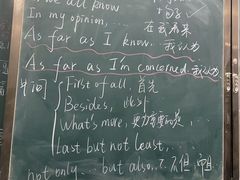 we all know
In my opinion, 在我看来
As far as I know. 我认为
As far as I'm concerned 我认为
First of all, 首先
Besides, 此外
What's more, 更为重要的是,
Last but not least,
not only... but also..? 不但,而且